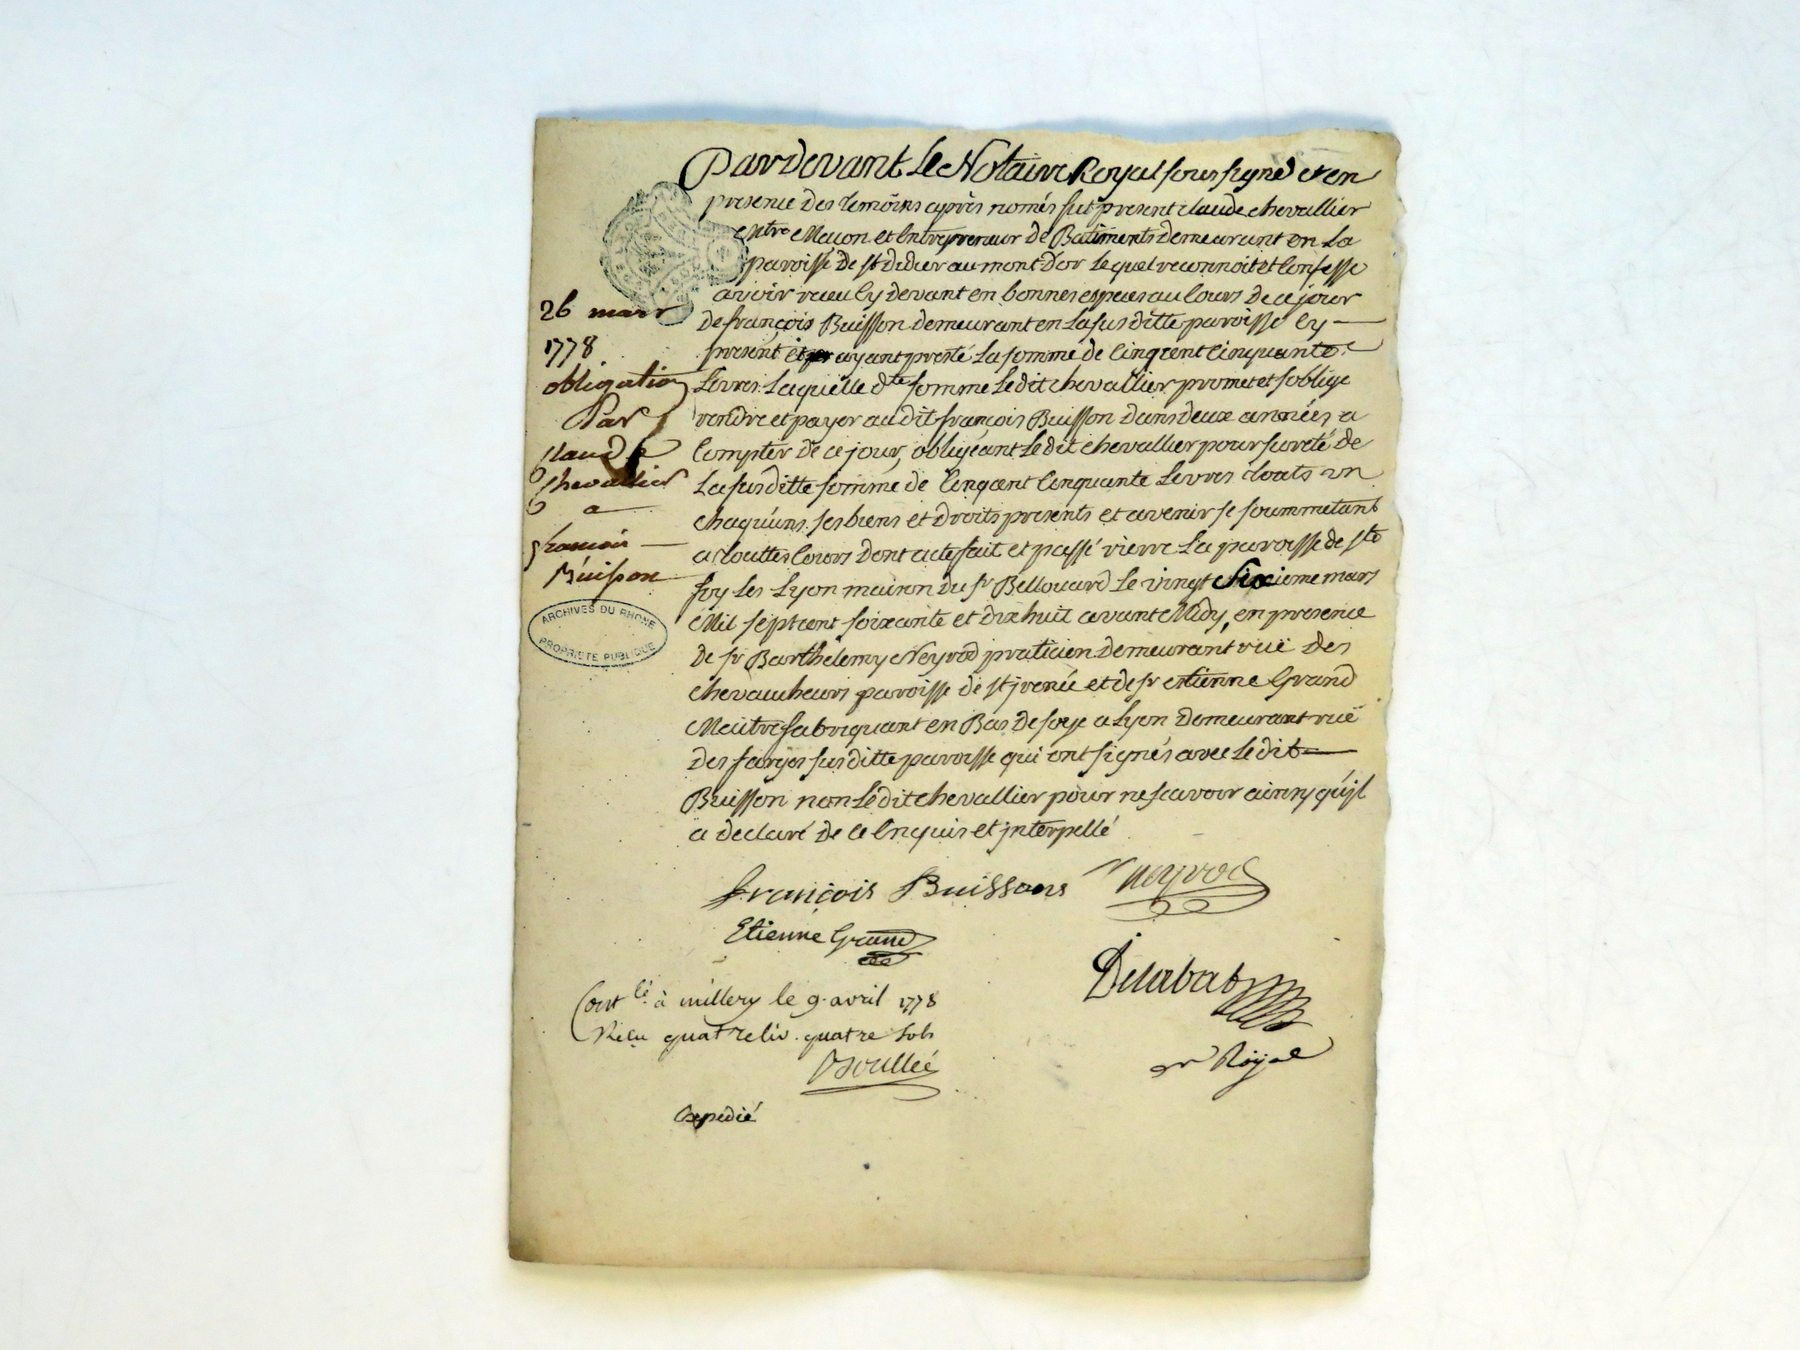 Pardevant Le Notaire Royal soussigné et en
presence des temoins après només fut present claude chevallier
Mtre Maçon et Entrepreneur de Batiments demeurant en La
paroisse de st didier au mont d'or Lequel reconnoit et Confesse
avoir reçu Cy devant en bonnes especes au Cours de ce jour
de françois Buisson demeurant en La sus ditte paroisse Cy
present et ayant presté La somme de Cinqcent Cinquante
Livres Laquelle dte somme Le dit chevallier promet et soblige
rendre et payer au dit françois Buisson dans deux années a
Compter de ce jour, obligeant Le dit chevallier pour sureté de
La sus ditte somme de Cinqcent Cinquante Livres touts un
chaquuns ses biens et Droits presents et avenir se soummettant
a touttes Cours dont acte fait et passé rierre La paroisse de ste
foy Les Lyon maison du sr Bellouard Le vingt Sixieme mars
Mil septcent soixante et dixhuit avant Midy, en presence
de sr Barthelemy Neyrod praticien demeurant ruë des
chevaucheurs paroisse de st jrenée et de sr estienne Grand
Maitre fabriquant en Bas de soye a Lyon demeurant ruë
des farges sus ditte paroisse qui ont signés avec Le dit
Buisson non Le dit chevallier pour ne scavoir ainsy qu'jl
a declaré de ce Enquis et jnterpellé
26 mars
1778
obligation
Par
claude
chevallier
a
francois
Buisson
ARCHIVES DU RHONE
PROPRIETE PUBLIQUE
François Buissons
Neyrod
Etienne Grand
Delabat
Contlé à millery le 9 avril 1778
Reçu quatre liv. quatre sols
Boullée
nre Royal
Expedié